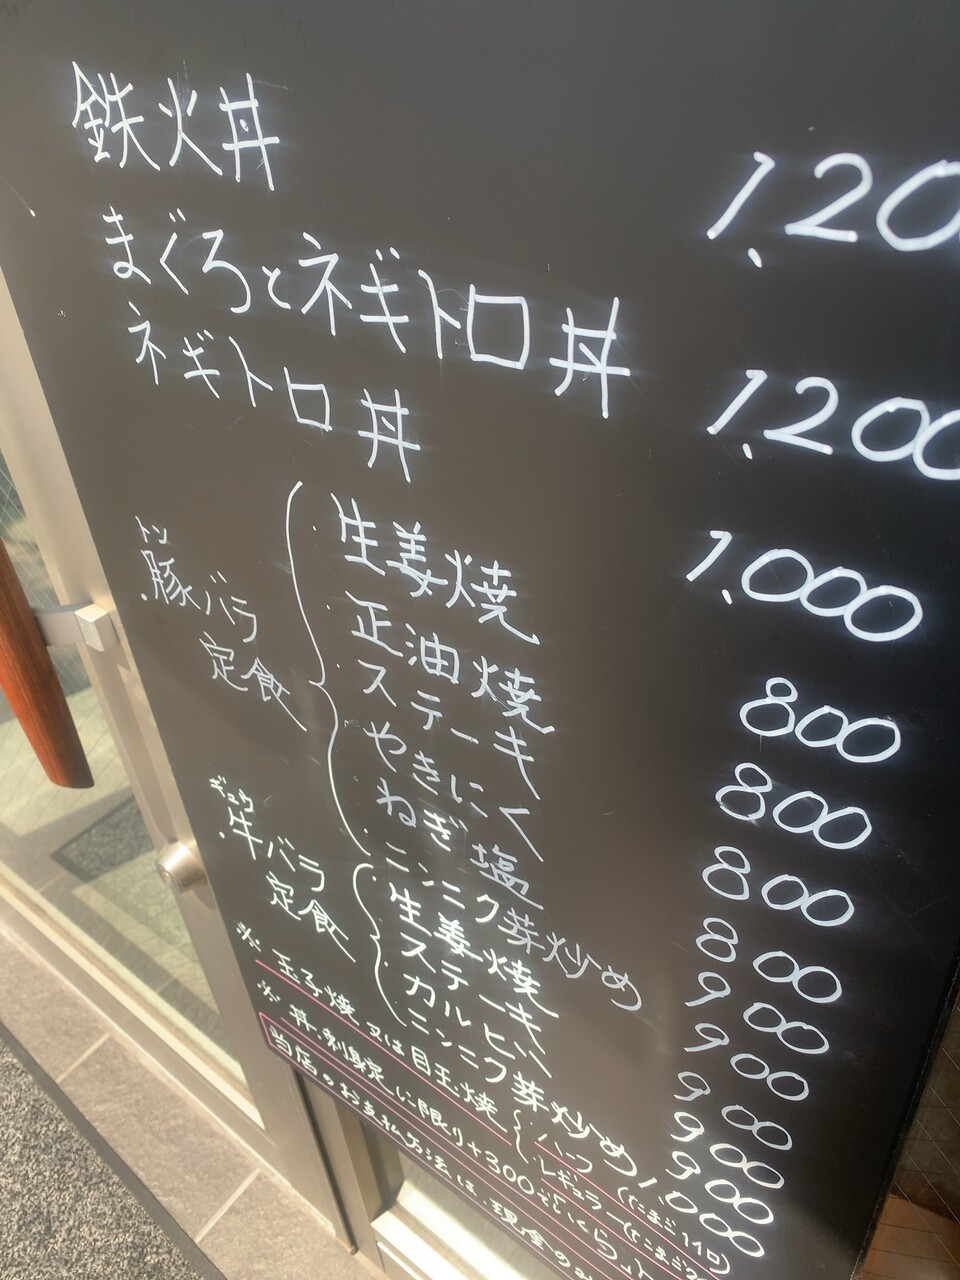 鉄火丼 1,200
まぐろとネギトロ丼 1,200
ネギトロ丼 1,000
トン
豚バラ
定食
生姜焼 800
正油焼 800
ステーキ 800
やきにく 800
ねぎ塩 900
ニンニク芽炒め 900
ギュウ
牛バラ
定食
生姜焼 900
ステーキ 900
カルビ 900
ニンニク芽炒め 1,000
※ 玉子焼 又は 目玉焼 ハーフ (たまご1コ)
レギュラー (たまご2
※ 丼、刺身定に限り+300でいくら
当店のお支払方法は、現金のみ